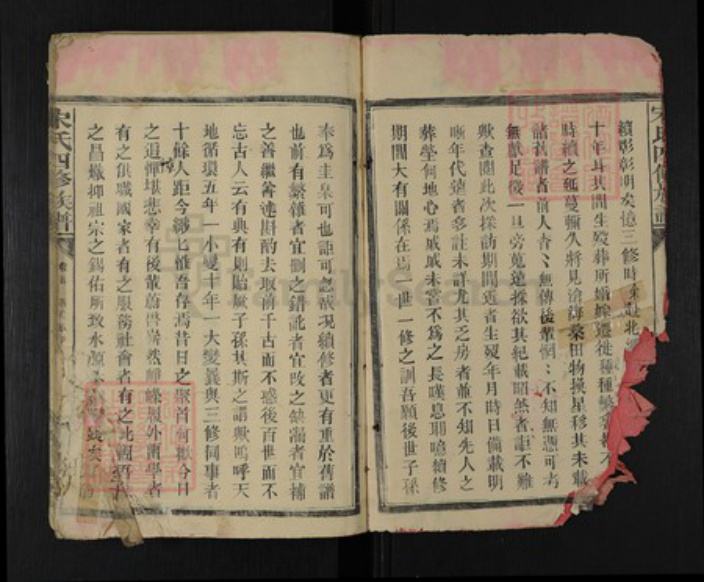 宋氏四修族譜
續彰彰明矣憶三修時
十年耳其間生歿葬所婚嫁遷徙種種繁
時續之經葛輾久將見滄海桑田物換星移其未載
詁舊譜者前人杳杳無傳後輩惘惘不知無憑可考
無獻足徵一旦旁蒐遠採欲其紀載昭然者詎不難
歟查閱此次採訪期間近者生歿年月時日備載明
晰年代遠者多註未詳尤其乏房者並不知先人之
葬塋何地心焉戚戚未嘗不為之長嘆息耶噫續修
期間大有關係在焉一世一修之訓吾願後世子孫
奉為圭臬可也詎可忽哉現續修者更有重於舊譜
也前有繁雜者宜刪之錯訛者宜改之缺漏者宜補
之善繼善述斟酌去取前千古而不惑後百世而不
忘古人云有典有則貽厥子孫其斯之謂歟嗚呼天
地循環五年一小變十年一大變曩與三修同事者
十餘人距今惟吾存焉昔日之聚首何歟今日
之追悼堪悲幸有後輩蔚然崢嶸履外肄學者
有之供職國家者有之服務社會者有之此固吾
之昌熾抑祖宗之錫佑所致水源
宋氏四修族譜